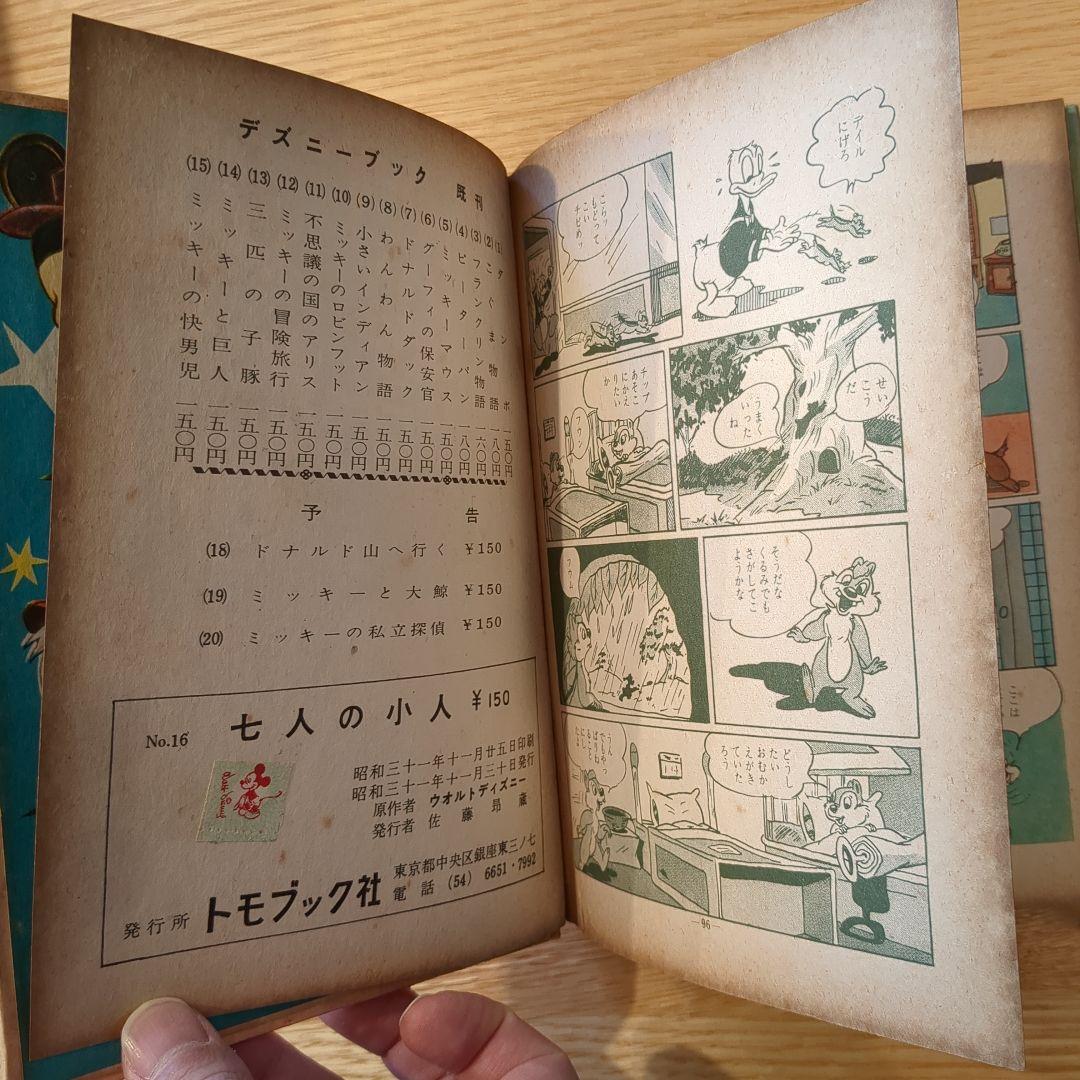 デズニーブック 既刊
(1) ダンボ 一五〇円
(2) こぐま物語 一八〇円
(3) フランクリン物語 一六〇円
(4) ピーターパン 一八〇円
(5) ミッキーマウス 一五〇円
(6) グーフィの保安官 一五〇円
(7) ドナルドダック 一五〇円
(8) わんわん物語 一五〇円
(9) 小さいインディアン 一五〇円
(10) ミッキーのロビンフット 一五〇円
(11) 不思議の国のアリス 一五〇円
(12) ミッキーの冒険旅行 一五〇円
(13) 三匹の子豚 一五〇円
(14) ミッキーと巨人 一五〇円
(15) ミッキーの快男児 一五〇円
予告
(18) ドナルド山へ行く ¥150
(19) ミッキーと大鯨 ¥150
(20) ミッキーの私立探偵 ¥150
No.16 七人の小人 ¥150
昭和三十一年十一月廿五日印刷
昭和三十一年十一月三十日発行
原作者 ウオルトディズニー
発行者 佐藤昂蔵
発行所 トモブック社
東京都中央区銀座東三ノ七
電話 (54) 6651・7992
デイル
にげろ
こらッ
もどって
こい
せい
こう
だ
うまく
いった
ね
チップ
あそこ
にかえ
りたい
そうだな
くるみでも
さがしてこ
ようかな
どうし
たい
おむか
えがき
ていた
ろう
うん
でもやっ
ぱりね
14
—96—
ここ
は